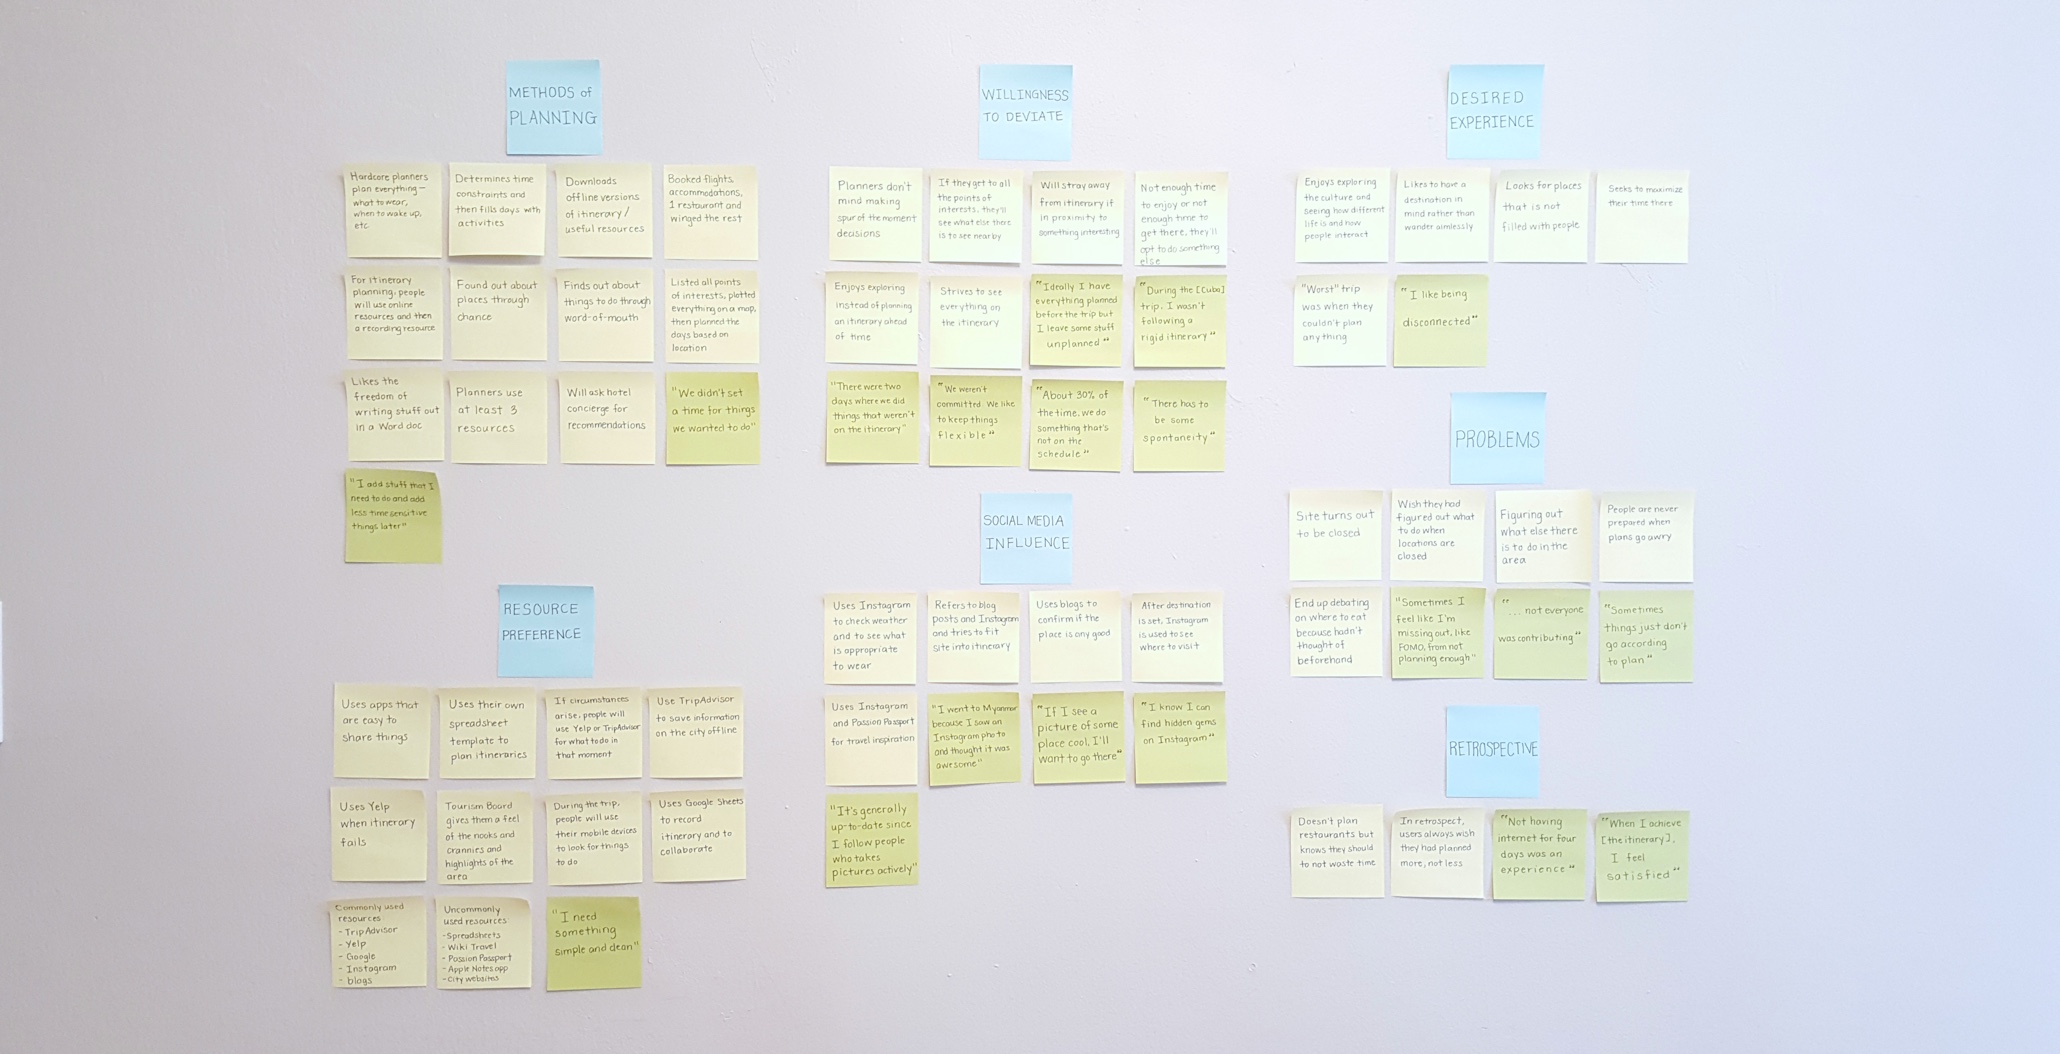 METHODS of
PLANNING
Hardcore planners
plan everything—
what to wear,
when to wake up,
etc.
Determines time
constraints and
then fills days with
activities
Downloads
offline versions
of itinerary /
useful resources
Booked flights,
accommodations,
1 restaurant and
winged the rest
For itinerary
planning, people
will use online
resources and then
a recording resource
Found out about
places through
chance
Finds out about
things to do through
word-of-mouth
Listed all points
of interests, plotted
everything on a map,
then planned the
days based on
location
Likes the
freedom of
writing stuff out
in a Word doc
Planners use
at least 3
resources
Will ask hotel
concierge for
recommendations
"We didn't set
a time for things
we wanted to do"
"I add stuff that I
need to do and add
less time sensitive
things later"
RESOURCE
PREFERENCE
Uses apps that
are easy to
share things
Uses their own
spreadsheet
template to
plan itineraries
If circumstances
arise, people will
use Yelp or TripAdvisor
for what to do in
that moment
Use TripAdvisor
to save information
on the city offline
Uses Yelp
when itinerary
fails
Tourism Board
gives them a feel
of the nooks and
crannies and
highlights of the
area
During the trip,
people will use
their mobile devices
to look for things
to do
Uses Google Sheets
to record
itinerary and to
collaborate
Commonly used
resources
- TripAdvisor
- Yelp
- Google
- Instagram
- blogs
Uncommonly
used resources
- Spreadsheets
- Wiki Travel
- Passion Passport
- Apple Notes app
- City websites
"I need
something
simple and clean"
WILLINGNESS
TO DEVIATE
Planners don't
mind making
spur of the moment
decisions
If they get to all
the points of
interests, they'll
see what else there
is to see nearby
Will stray away
from itinerary if
in proximity to
something interesting
Not enough time
to enjoy or not
enough time to
get there, they'll
opt to do something
else
Enjoys exploring
instead of planning
an itinerary ahead
of time
Strives to see
everything on
the itinerary
"Ideally I have
everything planned
before the trip but
I leave some stuff
unplanned"
"During the [Cuba]
trip, I wasn't
following a
rigid itinerary"
"There were two
days where we did
things that weren't
on the itinerary"
"We weren't
committed. We like
to keep things
flexible"
"About 30% of
the time, we do
something that's
not on the
schedule"
"There has to
be some
spontaneity"
SOCIAL MEDIA
INFLUENCE
Uses Instagram
to check weather
and to see what
is appropriate
to wear
Refers to blog
posts and Instagram
and tries to fit
site into itinerary
Uses blogs to
confirm if the
place is any good
After destination
is set, Instagram
is used to see
where to visit
Uses Instagram
and Passion Passport
for travel inspiration
"I went to Myanmar
because I saw an
Instagram photo
and thought it was
awesome"
"If I see a
picture of some
place cool, I'll
want to go there"
"I know I can
find hidden gems
on Instagram"
"It's generally
up-to-date since
I follow people
who takes
pictures actively"
DESIRED
EXPERIENCE
Enjoys exploring
the culture and
seeing how different
life is and how
people interact
Likes to have a
destination in
mind rather than
wander aimlessly
Looks for places
that is not
filled with people
Seeks to maximize
their time there
"Worst" trip
was when they
couldn't plan
anything
"I like being
disconnected"
PROBLEMS
Site turns out
to be closed
Wish they had
figured out what
to do when
locations are
closed
Figuring out
what else there
is to do in the
area
People are never
prepared when
plans go awry
End up debating
on where to eat
because hadn't
thought of
beforehand
"Sometimes I
feel like I'm
missing out, like
FOMO, from not
planning enough"
"... not everyone
was contributing"
"Sometimes
things just don't
go according
to plan"
RETROSPECTIVE
Doesn't plan
restaurants but
knows they should
to not waste time
In retrospect,
users always wish
they had planned
more, not less
"Not having
internet for four
days was an
experience"
"When I achieve
[the itinerary],
I feel
satisfied"